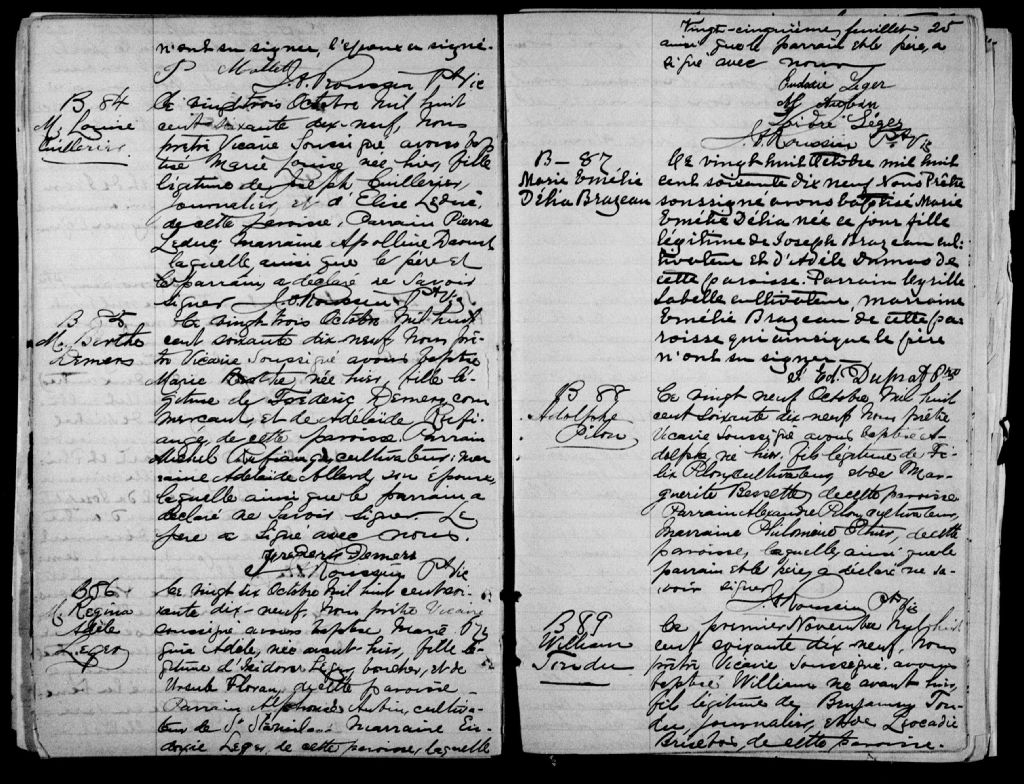 n'ont su signer, l'époux a signé.
P Mallet
J. O. Roussin Ptre Vic
B. 84
M. Louise
Cuillerier
Le vingt trois Octobre mil huit
cent soixante dix-neuf, Nous
prêtre Vicaire Soussigné, avons bap
tisé Marie Louise née hier, fille
légitime de Joseph Cuillerier,
Journalier, et d'Elise Leduc,
de cette paroisse, Parrain Pierre
Leduc marraine Apolline Daoust
laquelle ainsi que le père et
le parrain a déclaré ne Savoir
signer. J. O. Roussin Ptre Vic.
B. 85
M. Berthe
Demers
Le vingt trois Octobre Mil huit
cent soixante dix-neuf Nous prê-
tre Vicaire Soussigné avons baptisé
Marie Berthe née hier, fille lé-
gitime de Frédéric Demers com
merçant, et de Adélaïde
de cette paroisse. Parrain
Michel cultivateur; mar
raine Adélaïde Allard, son épouse,
laquelle ainsi que le parrain a
déclaré ne Savoir Signer. Le
père a Signé avec nous.
Frederic Demers
J. O. Roussin Ptre Vic
B 86
M. Régina
Adèle
Léger
Le vingt six Octobre Mil huit cent soi
xante dix-neuf, Nous prêtre Vicaire
soussigné avons baptisé Marie Ré
gina Adèle, née avant-hier, fille lé-
gitime d'Isidore Léger, boucher, et de
Ursule Floran, de cette paroisse
Parrain Alphonse Aubin, cultiva-
teur de St Stanislas Marraine Eu-
doxie Léger, de cette paroisse, laquelle
Vingt-cinquième feuillet 25
ainsi que le parrain et le père, a
signé avec nous
Eudoxie Léger
Al Aubin
Isidre Léger
J. O. Roussin Ptre Vic
B - 87
Marie Emélie
Délia Brazeau
Le vingt huit Octobre mil huit
cent soixante dix neuf Nous Prêtre
soussigné avons baptisé Marie
Emélie Délia née ce jour fille
légitime de Joseph Brazeau cul-
tivateur et d'Adèle Dumas de
cette paroisse. Parrain Cyrille
Labelle cultivateur marraine
Emélie Brazeau de cette pa-
roisse qui ainsi que le père
n'ont su signer
Ed. Duprat Ptre
B 88
Adolphe
Pilon
Le vingt neuf Octobre Mil huit
cent Soixante dix neuf Nous prêtre
Vicaire Soussigné avons baptisé A-
dolphe né hier, fils légitime de Fé-
lix Pilon, cultivateur et de Mar-
guerite Bessette de cette paroisse
Parrain Alexandre Pilon, cultivateur,
Marraine Philomène Ethier, de cette
paroisse, laquelle ainsi que le
parrain et le père, a déclaré ne sa-
voir signer
J. O. Roussin Ptre Vic
B 89
William
Tondu
Le premier Novembre Mil huit
cent soixante dix neuf, Nous
prêtre Vicaire Soussigné, avons
baptisé William né avant hier,
fils légitime de Benjamin Ton-
du, journalier, et de Léocadie
Brisebois, de cette paroisse.